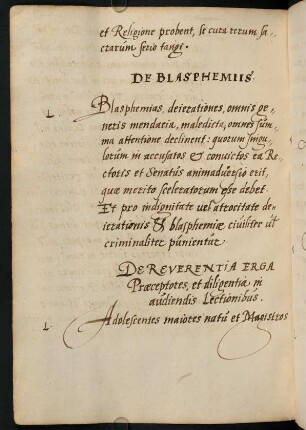 et Religione probent, se cura rerum sa-
crarum serio tangi.
DE BLASPHEMIIS.
1.
Blasphemias, deierationes, omnis ge-
neris mendacia, maledicta, omnes sum-
ma attentione declinent: quorum singu-
lorum in accusatos & convictos ea Re-
ctoris et Senatus animadversio erit,
quæ merito sceleratorum esse debet.
Et pro indignitate vel atrocitate de-
ierationis & blasphemiæ civiliter ut
criminaliter punientur.
DE REVERENTIA ERGA
Præceptores, et diligentia in
audiendis Lectionibus.
1.
Adolescentes maiores natu et Magistros